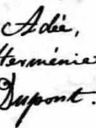 Adée,
Herménie
Dupont.